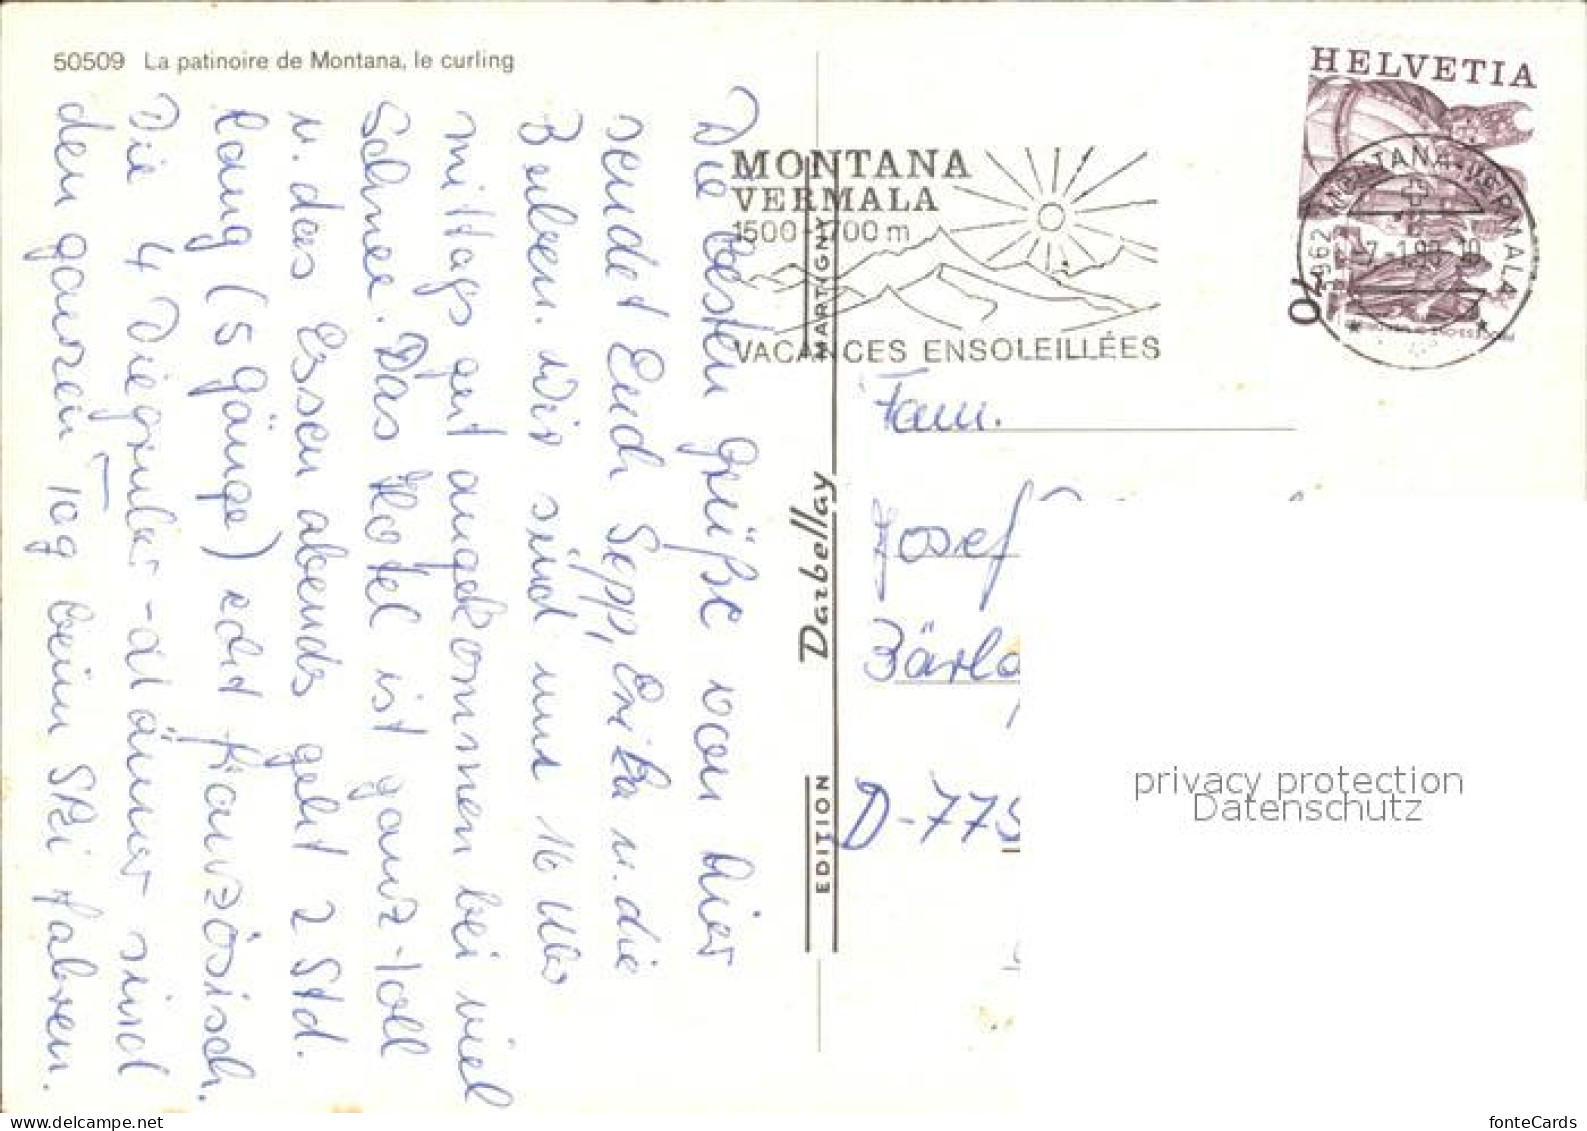 50509 La patinoire de Montana, le curling
Die besten Grüße von hier
sendet Euch Sepp, Erika u. die
Buben. Wir sind um 16 Uhr
mittags gut angekommen bei viel
Schnee. Das Hotel ist ganz toll
u. das Essen abends geht 2 Std.
lang (5 Gänge) echt französisch.
Die 4 sind
den ganzen Tag beim Ski fahren.
EDITION Darbellay MARTIGNY
MONTANA
VERMALA
1500-1700 m
VACANCES ENSOLEILLÉES
HELVETIA
70
3962 MONTANA-VERMALA
Fam.
Josef
D-775
privacy protection
Datenschutz
fonteCards